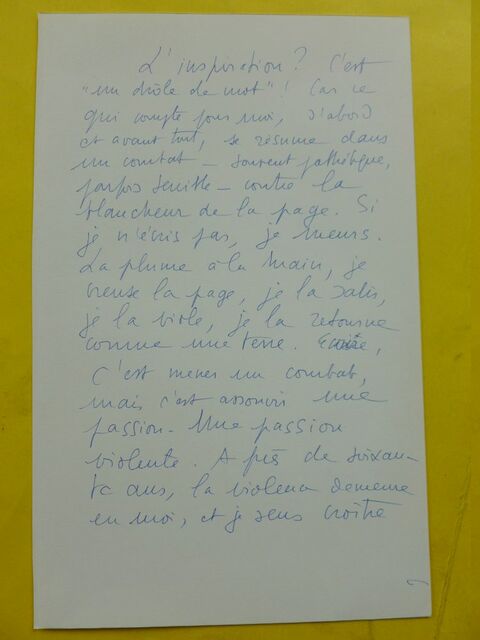 L'inspiration ? C'est
"un drôle de mot" ! Car ce
qui compte pour moi, d'abord
et avant tout, se résume dans
un combat – souvent pathétique,
parfois – contre la
blancheur de la page. Si
je n'écris pas, je meurs.
La plume à la main, je
creuse la page, je la salis,
je la viole, je la retourne
comme une terre. Ecrire,
C'est mener un combat,
mais c'est assouvir une
passion. Une passion
violente. A près de soixan-
te ans, la violence demeure
en moi, et je sens croître